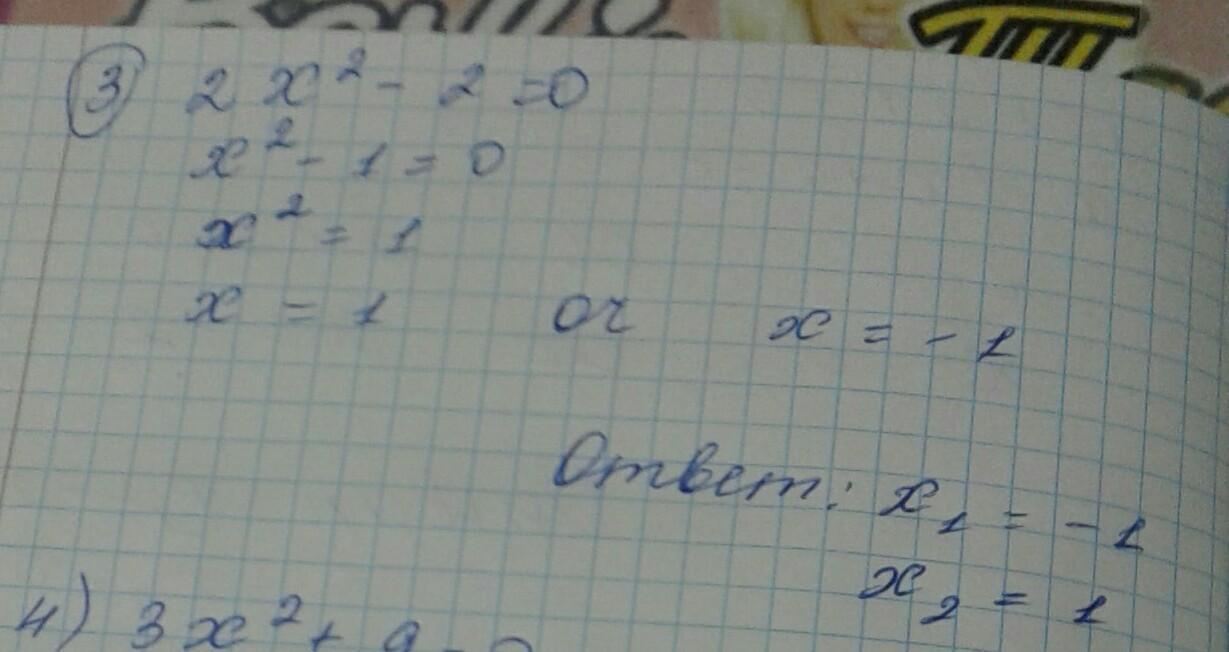 3 2x² - 2 = 0
x² - 1 = 0
x² = 1
x = 1 or x = - 1
Ответ: x₁ = - 1
x₂ = 1
4) 3x² +